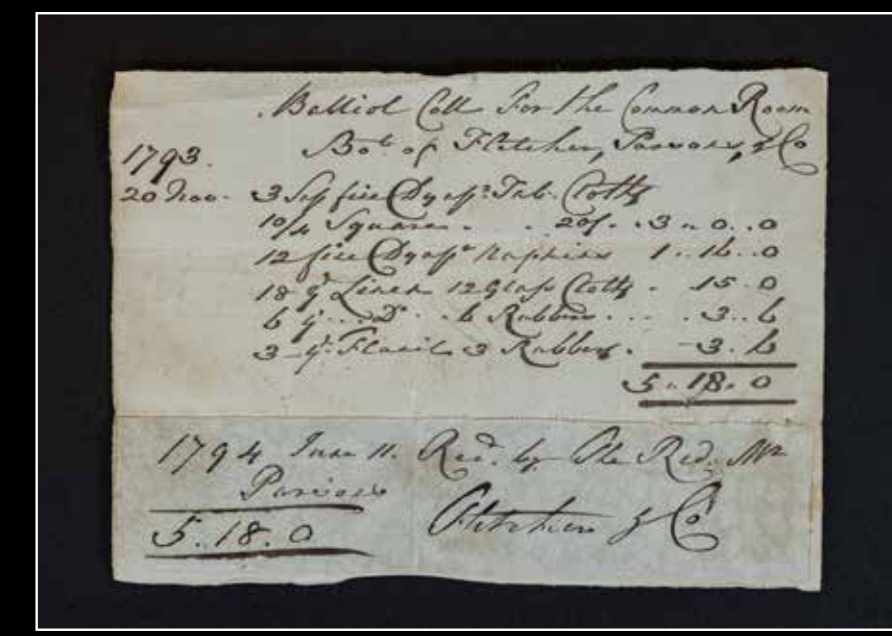 Balliol Coll For the Common Room
1793. Bot. of Fletcher, Parsons, & Co
20 Nov. 3 Sup fine Dyapr. Tab. Cloths
10/4 Square . . 20/. . 3 .. 0 .. 0
12 fine Dyapr Napkins 1 .. 16 .. 0
18 yd Linen 12 Glass Cloths . 15 . 0
6 yd .. Do .. 6 Rubbers . . . 3 .. 6
3 yd 3 Rubbers . - 3 . 6
5 .. 18 . 0
1794 June 11. Recd. by the Revd. Mr
Parsons
5 . 18 . 0 Fletcher & Co